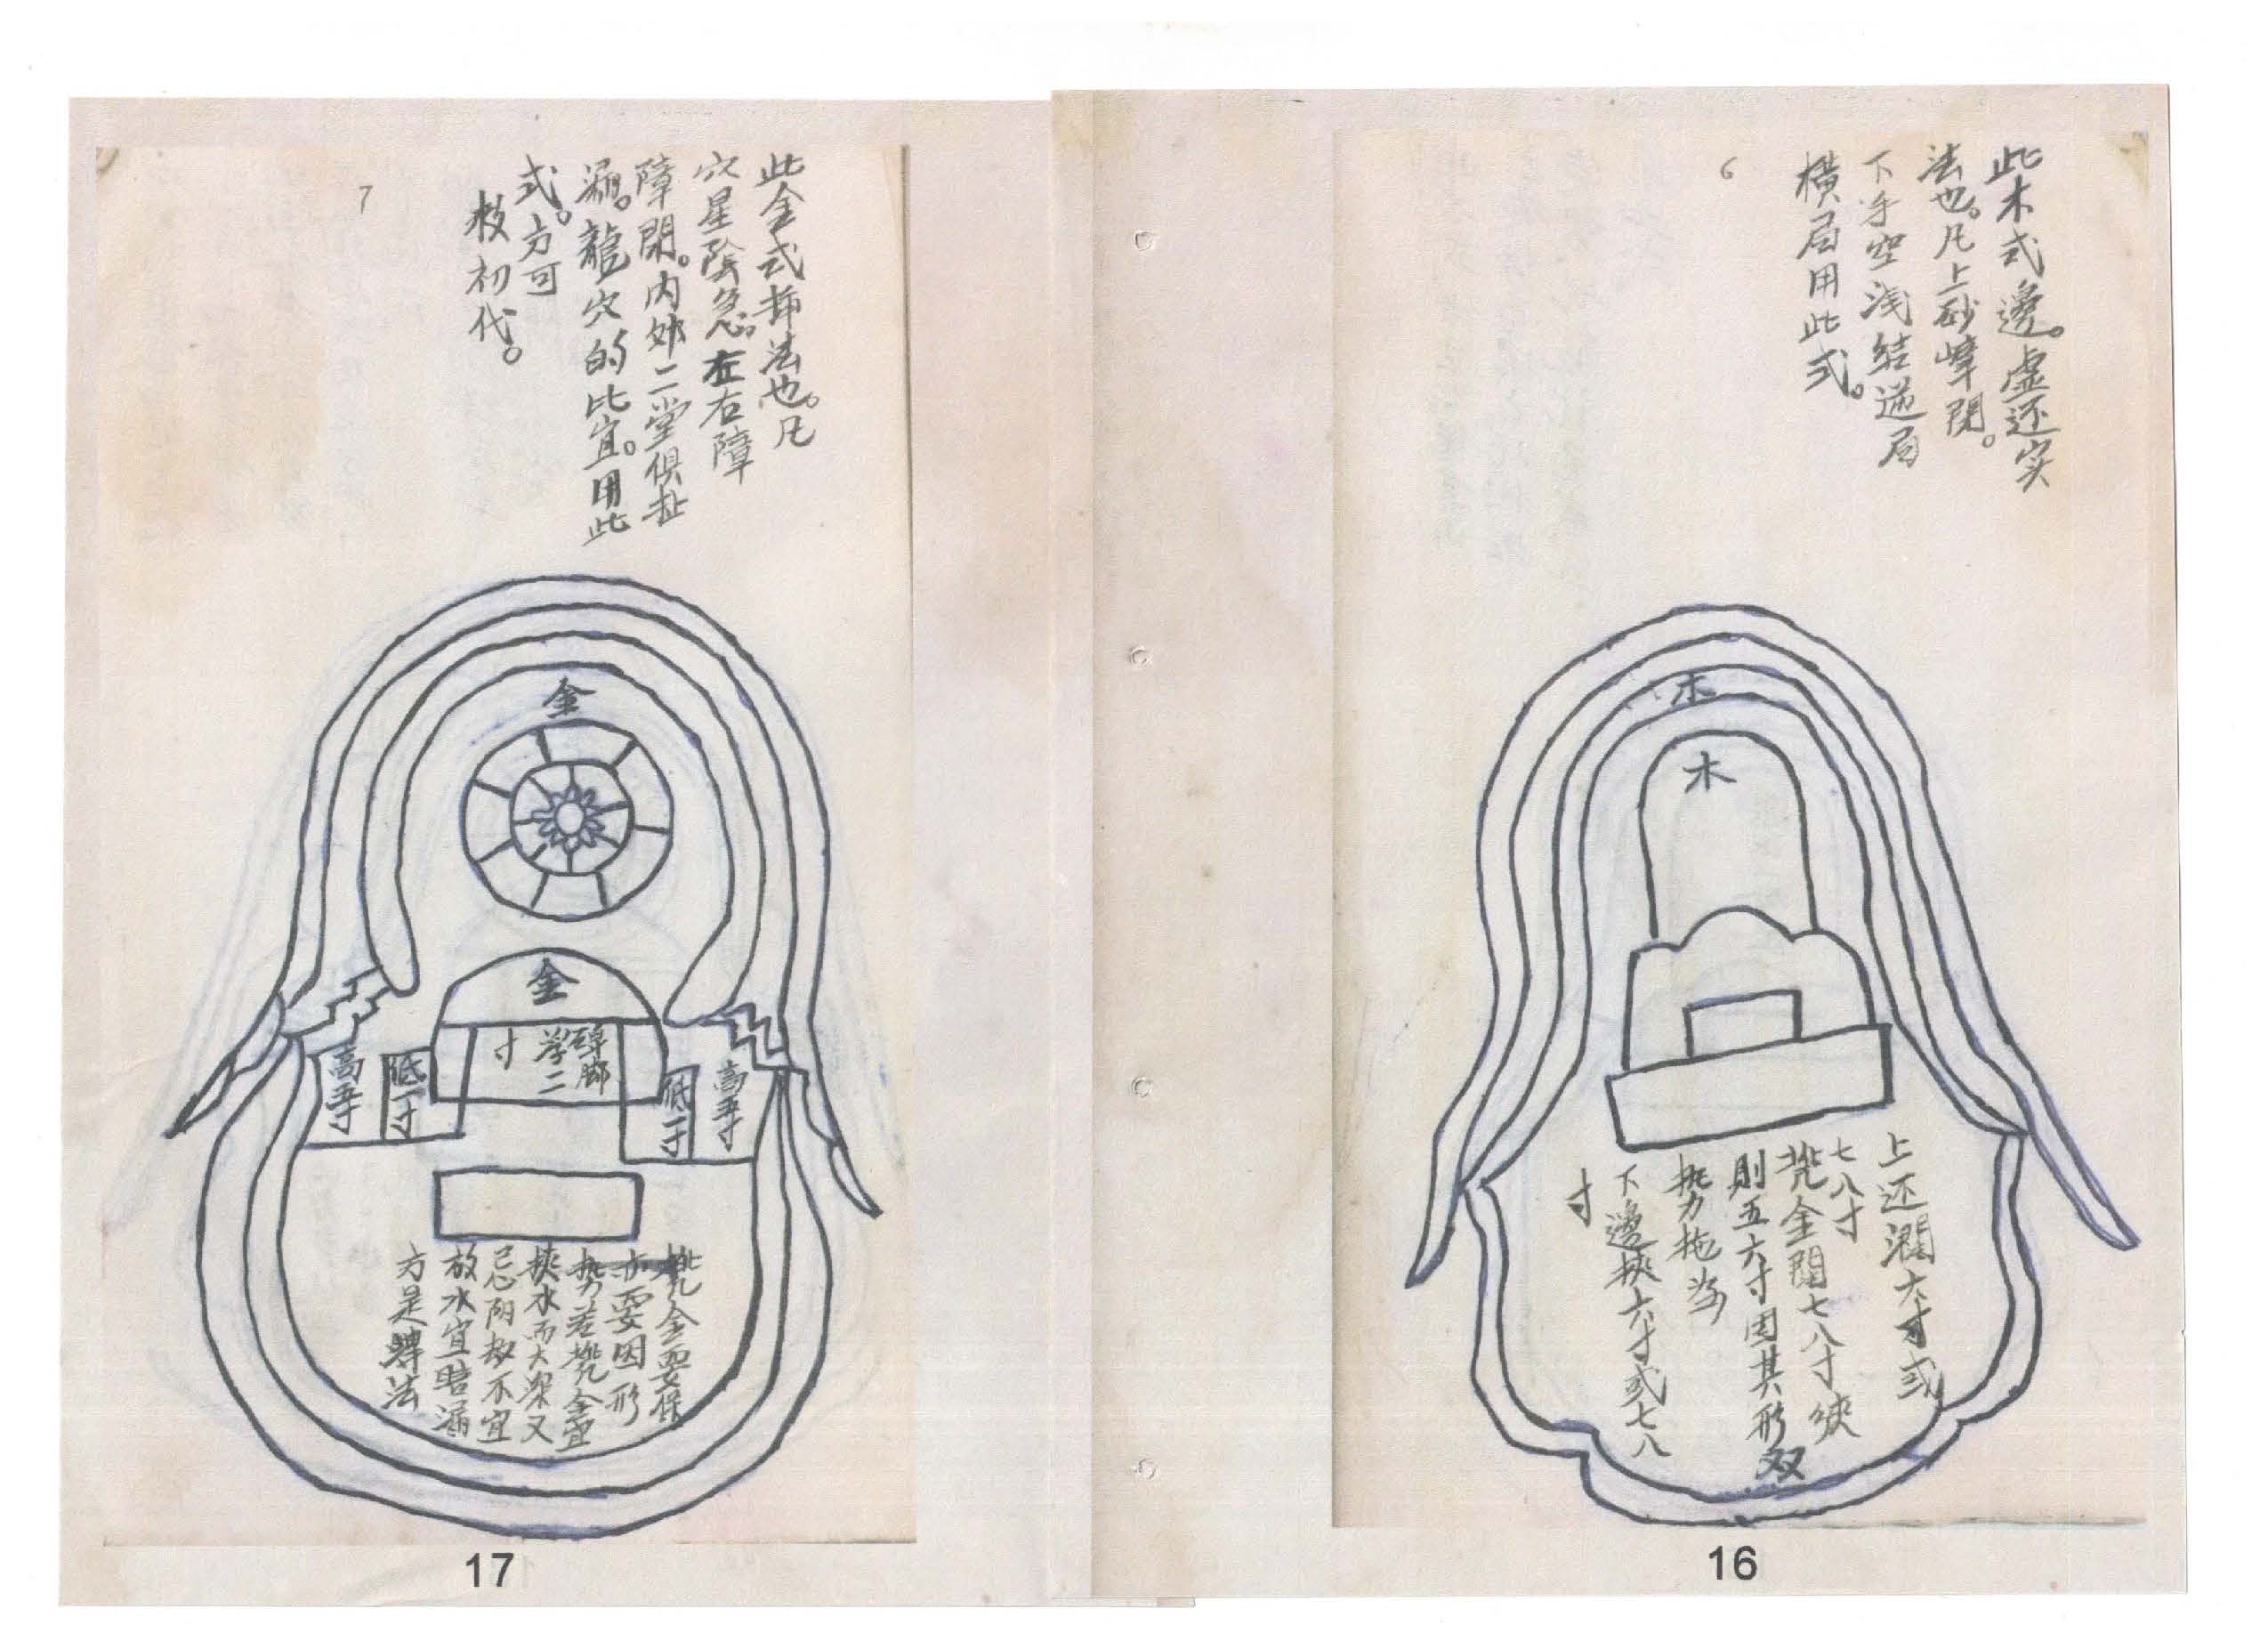 6
此木式邊。虚还实
法也。凡上砂嶂閉。
下手空浅结逆局
横局用此式。
木
木
上还濶六寸或
七八寸
兠金濶七八寸狹
則五六寸因其形
势拖出
下邊挾六寸或七八
寸
双
16
7
此金式𢬵法也。凡
穴星陰急。左右障
障閉。内外二堂俱扯
漏。龍穴的比宜。用此
式。方可
救初代。
金
金
碑廊
学二
寸
高五寸
低一寸
低一寸
高五寸
兠金要保
要因形
势若兠金宜
挾水而大深又
忌阴极不宜
放水宜暗漏
方是蟬法
17